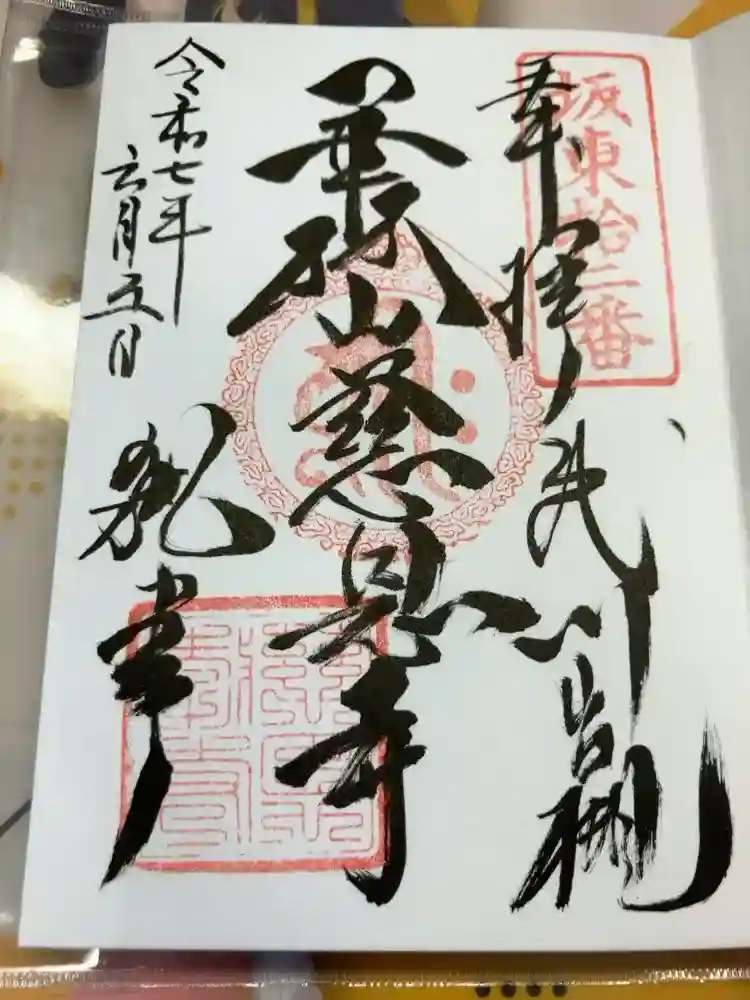 坂東拾二番
奉拝
武州岩槻
華林山慈恩寺
令和七年
六月五日
執事